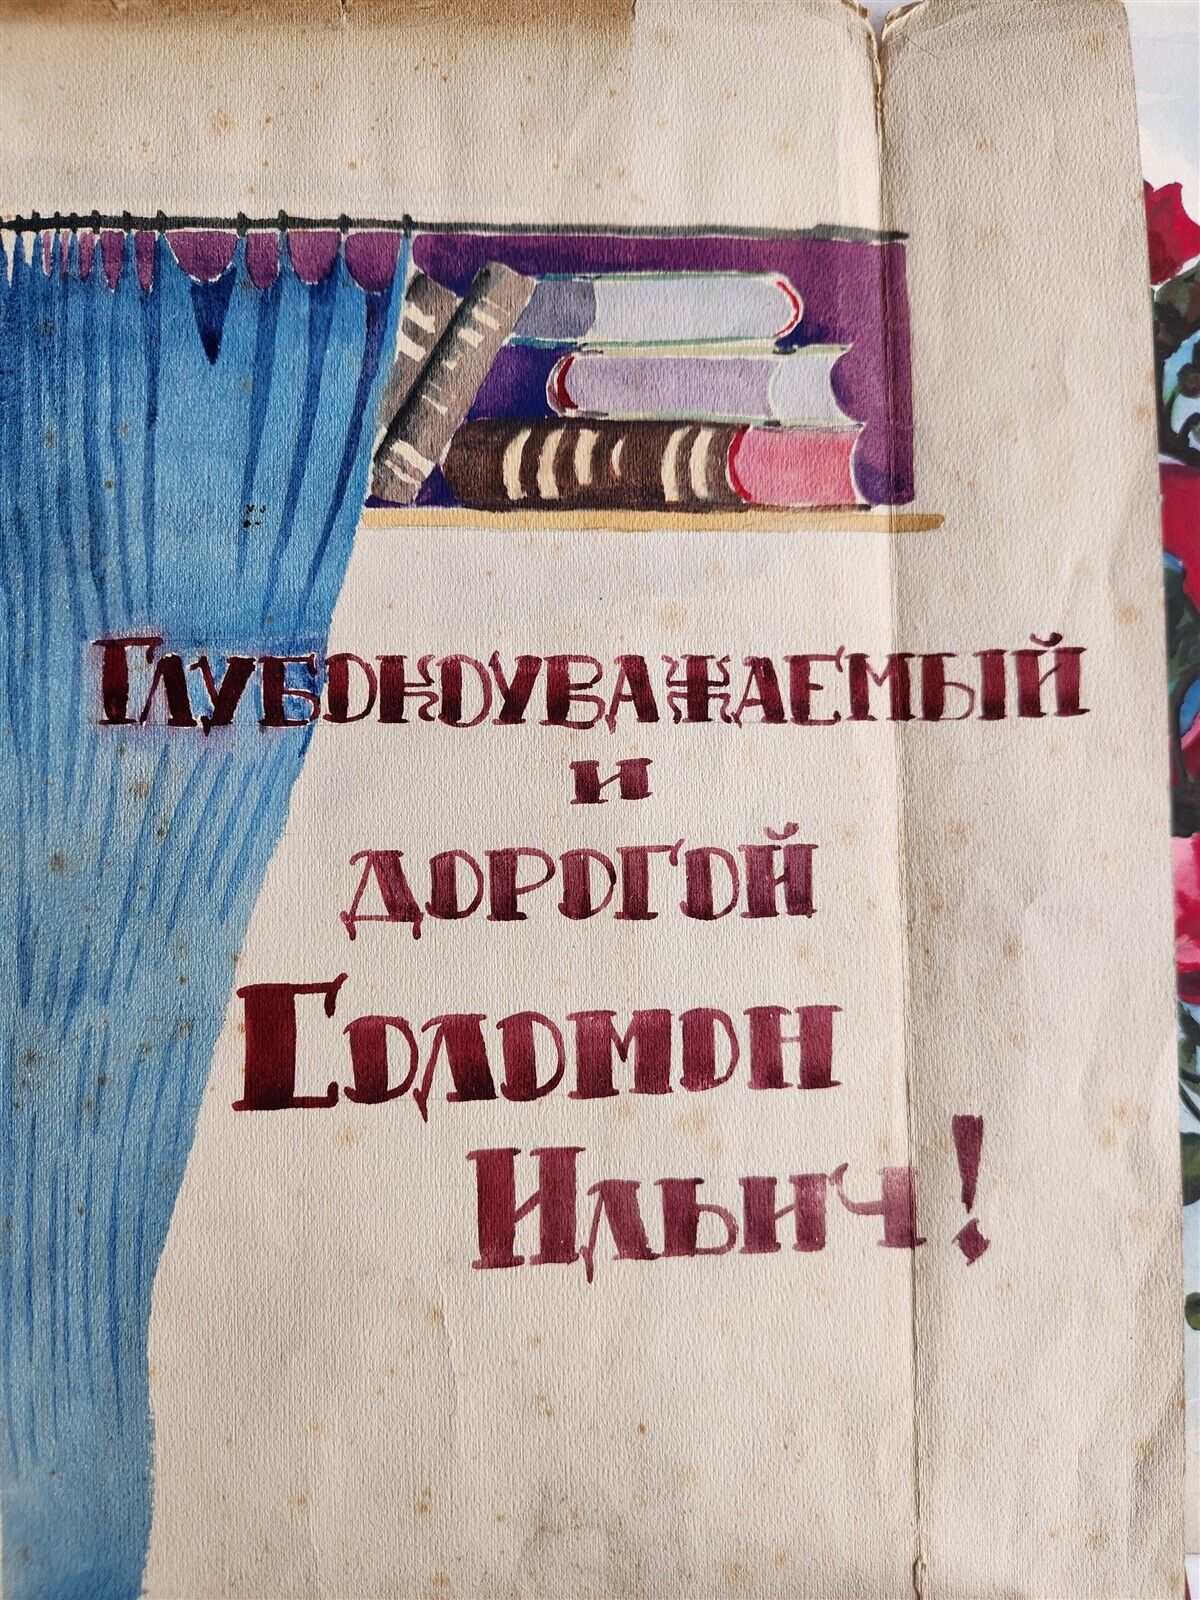 Глубокоуважаемый
и
дорогой
Соломон
Ильич!